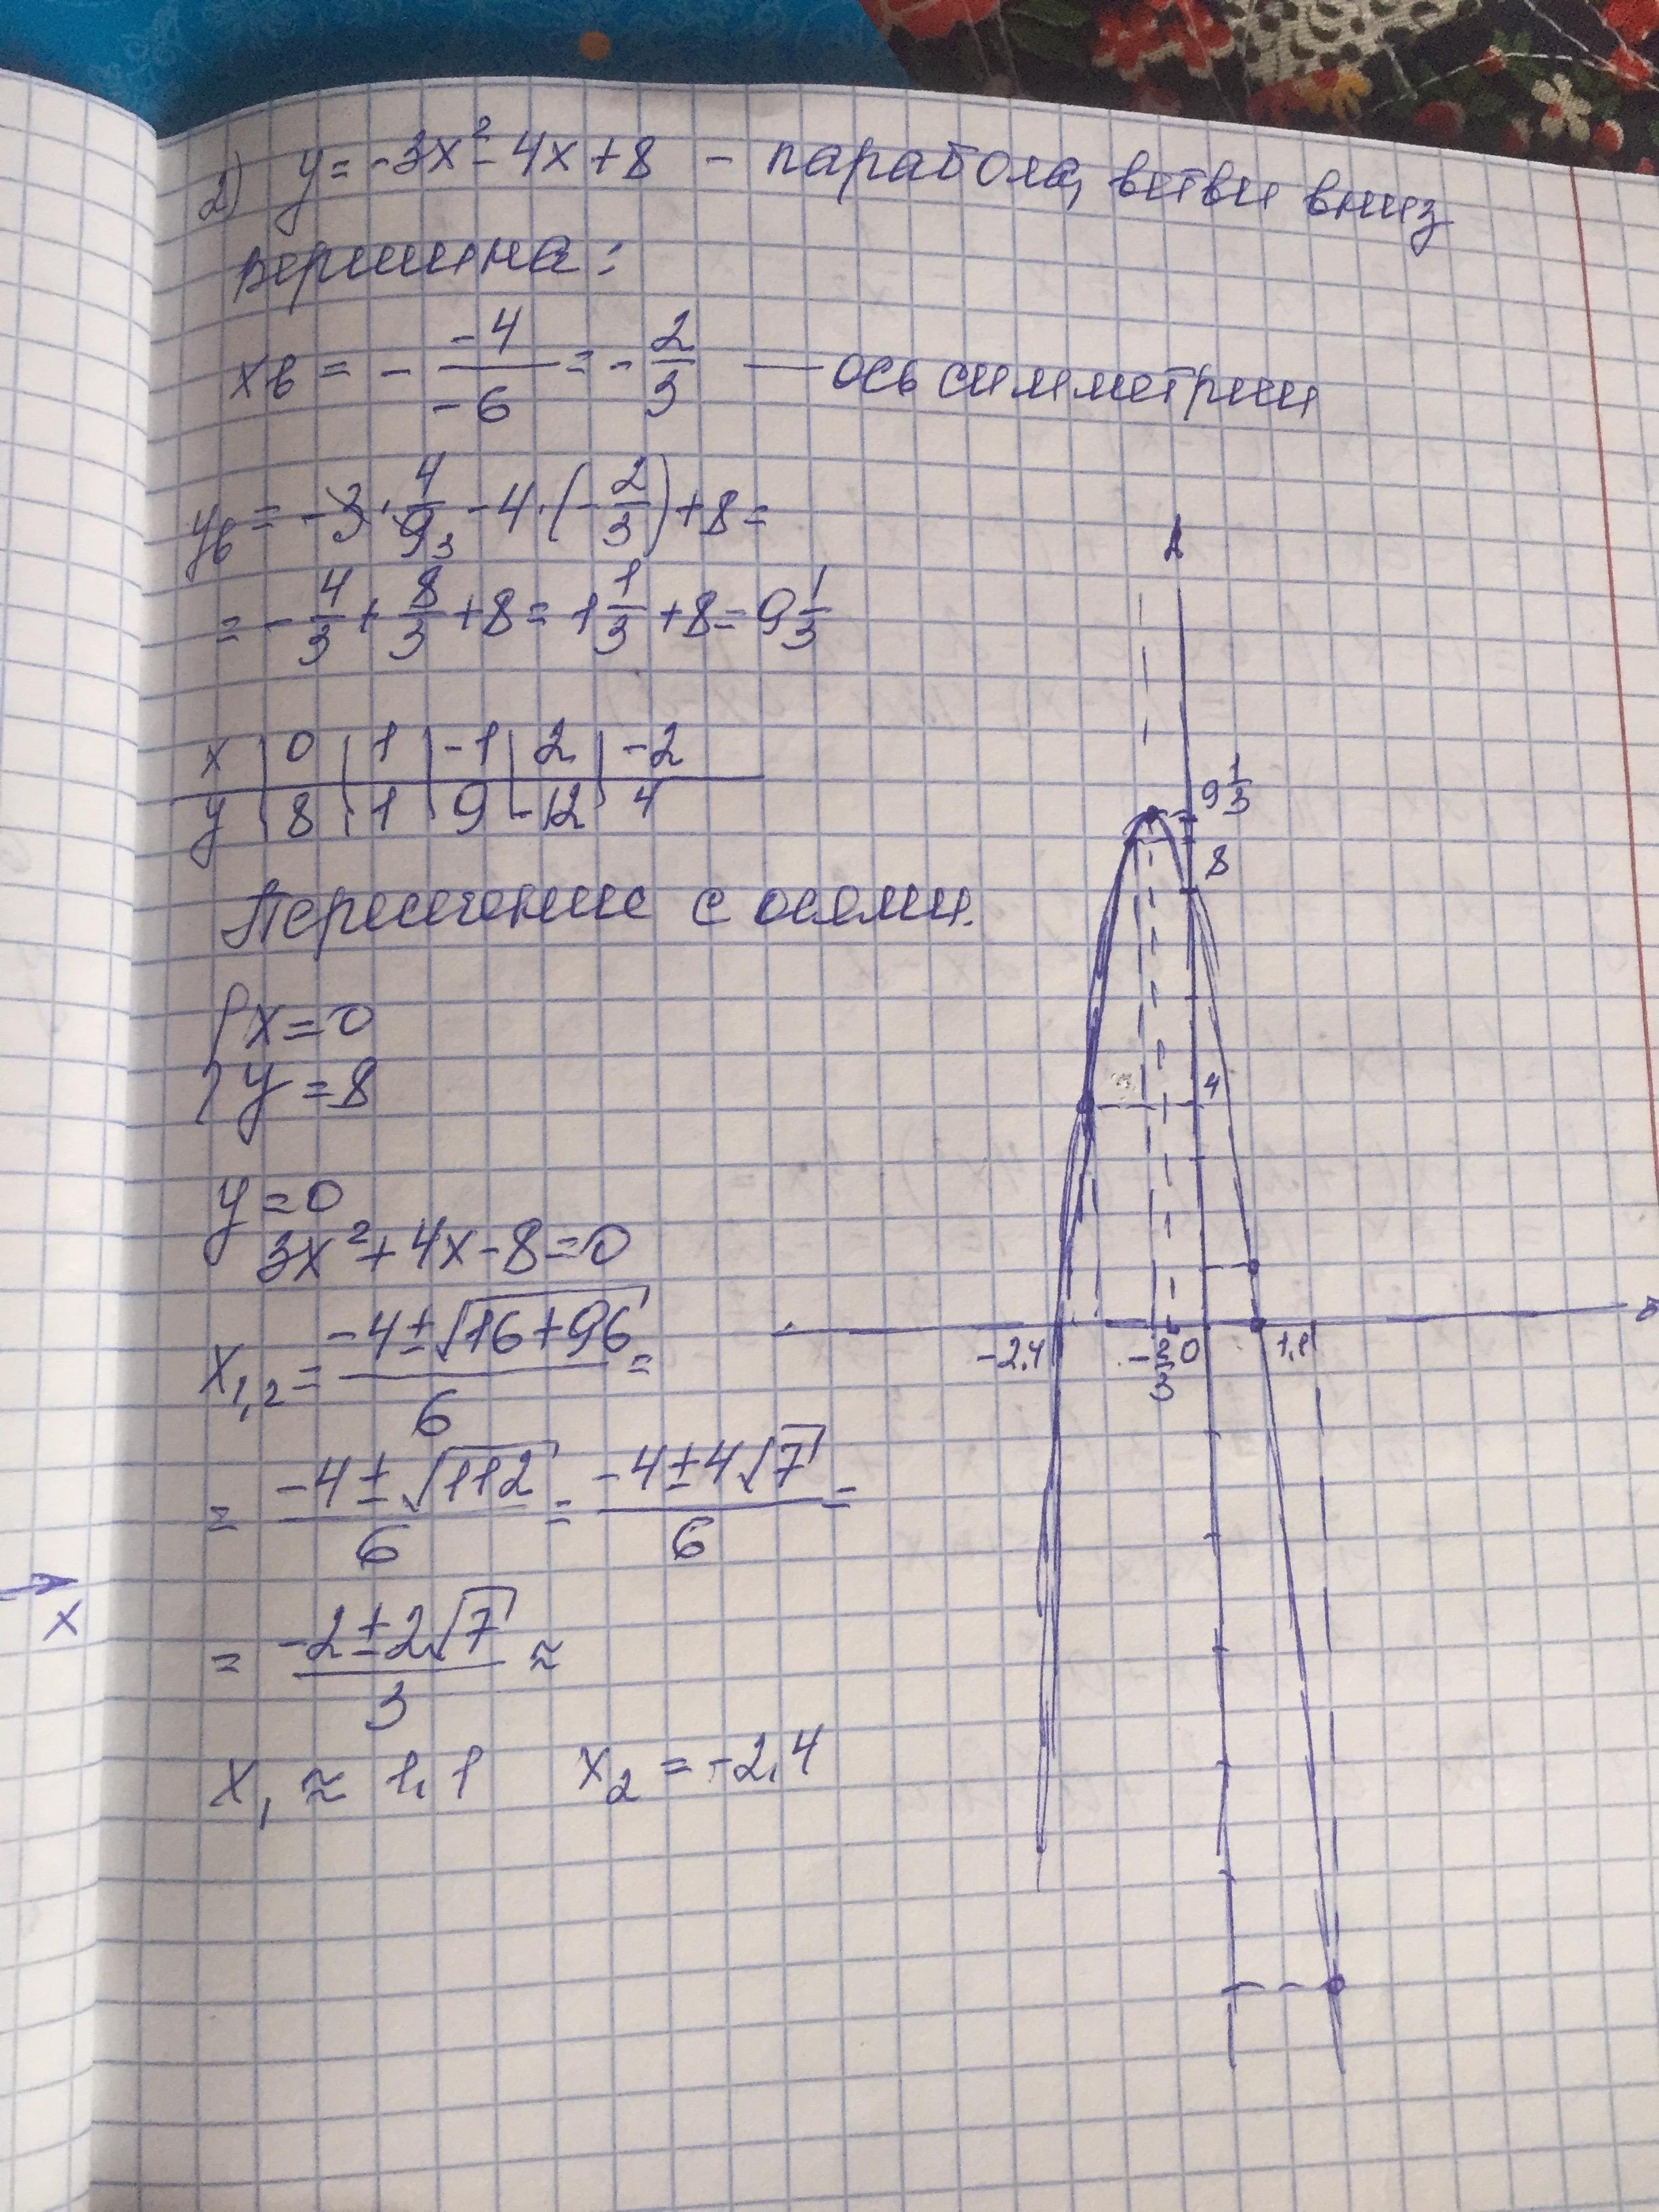 2) y = -3x² - 4x + 8 - парабола, ветви вниз
вершина:
xв = - -4/-6 = - 2/3 — ось симметрии
yв = -3 · 4/9 3 - 4 · (- 2/3) + 8 =
= - 4/3 + 8/3 + 8 = 1 1/3 + 8 = 9 1/3
x | 0 | 1 | -1 | 2 | -2
y | 8 | 1 | 9 | -12 | 4
Пересечение с осями.
{ x = 0
y = 8
y = 0
3x² + 4x - 8 = 0
x1,2 = -4 ± √16 + 96 / 6 =
= -4 ± √112 / 6 = -4 ± 4√7 / 6 =
= -2 ± 2√7 / 3 ≈
x1 ≈ 1,1 x2 = -2,4
x
9 1/3
8
4
-2,4
- 2/3
0
1,1